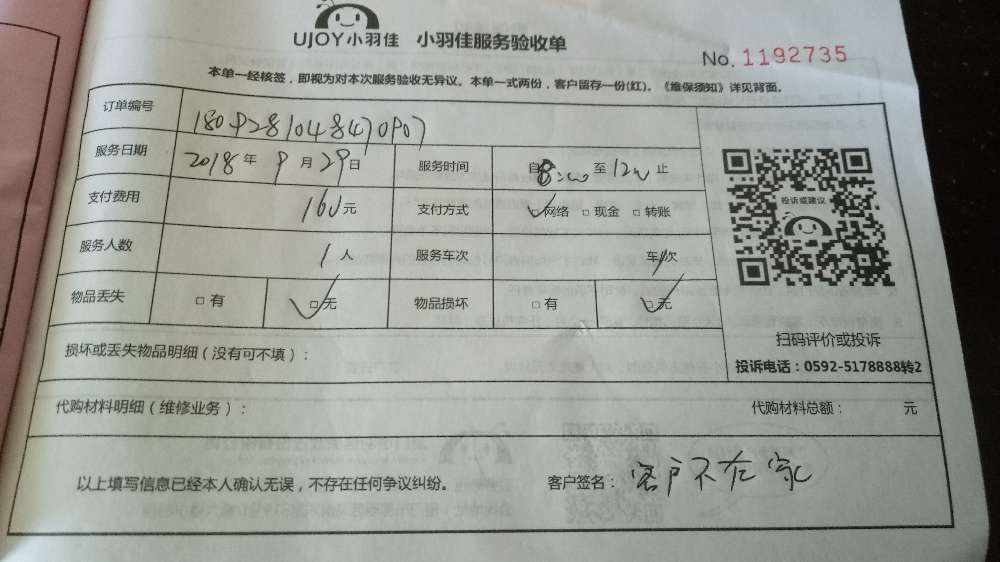 UJOY小羽佳 小羽佳服务验收单
No. 1192735
本单一经核签，即视为对本次服务验收无异议。本单一式两份，客户留存一份(红)。《维保须知》详见背面。
订单编号 1809281048470907
服务日期 2018年9月29日 服务时间 自8:00至12:00止
支付费用 160元 支付方式 ✓网络 □现金 □转账
服务人数 1人 服务车次 车/次
物品丢失 □有 ✓□无 物品损坏 □有 ✓□无
投诉或建议
扫码评价或投诉
投诉电话：0592-5178888转2
损坏或丢失物品明细（没有可不填）：
代购材料明细（维修业务）： 代购材料总额： 元
以上填写信息已经本人确认无误，不存在任何争议纠纷。 客户签名：客户不在家